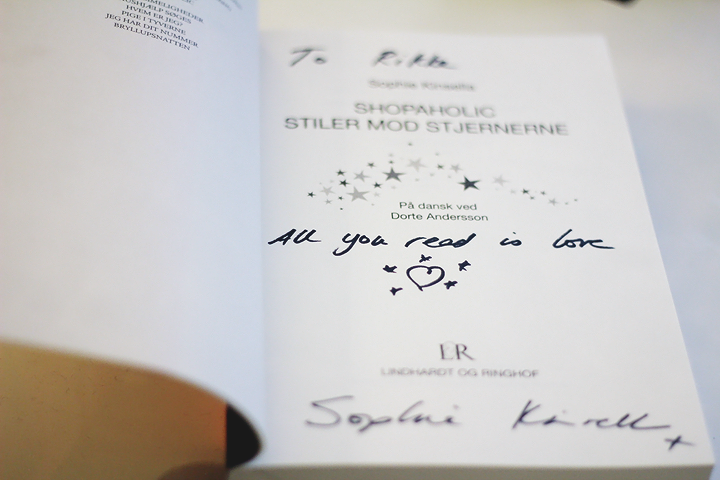 HVEM ER JEG?
PIGE I TYVERNE
JEG HAR DIT NUMMER
BRYLLUPSNATTEN
To Rikke
Sophie Kinsella
SHOPAHOLIC
STILER MOD STJERNERNE
På dansk ved
Dorte Andersson
All you read is love
LR
LINDHARDT OG RINGHOF
Sophie Kinsella x